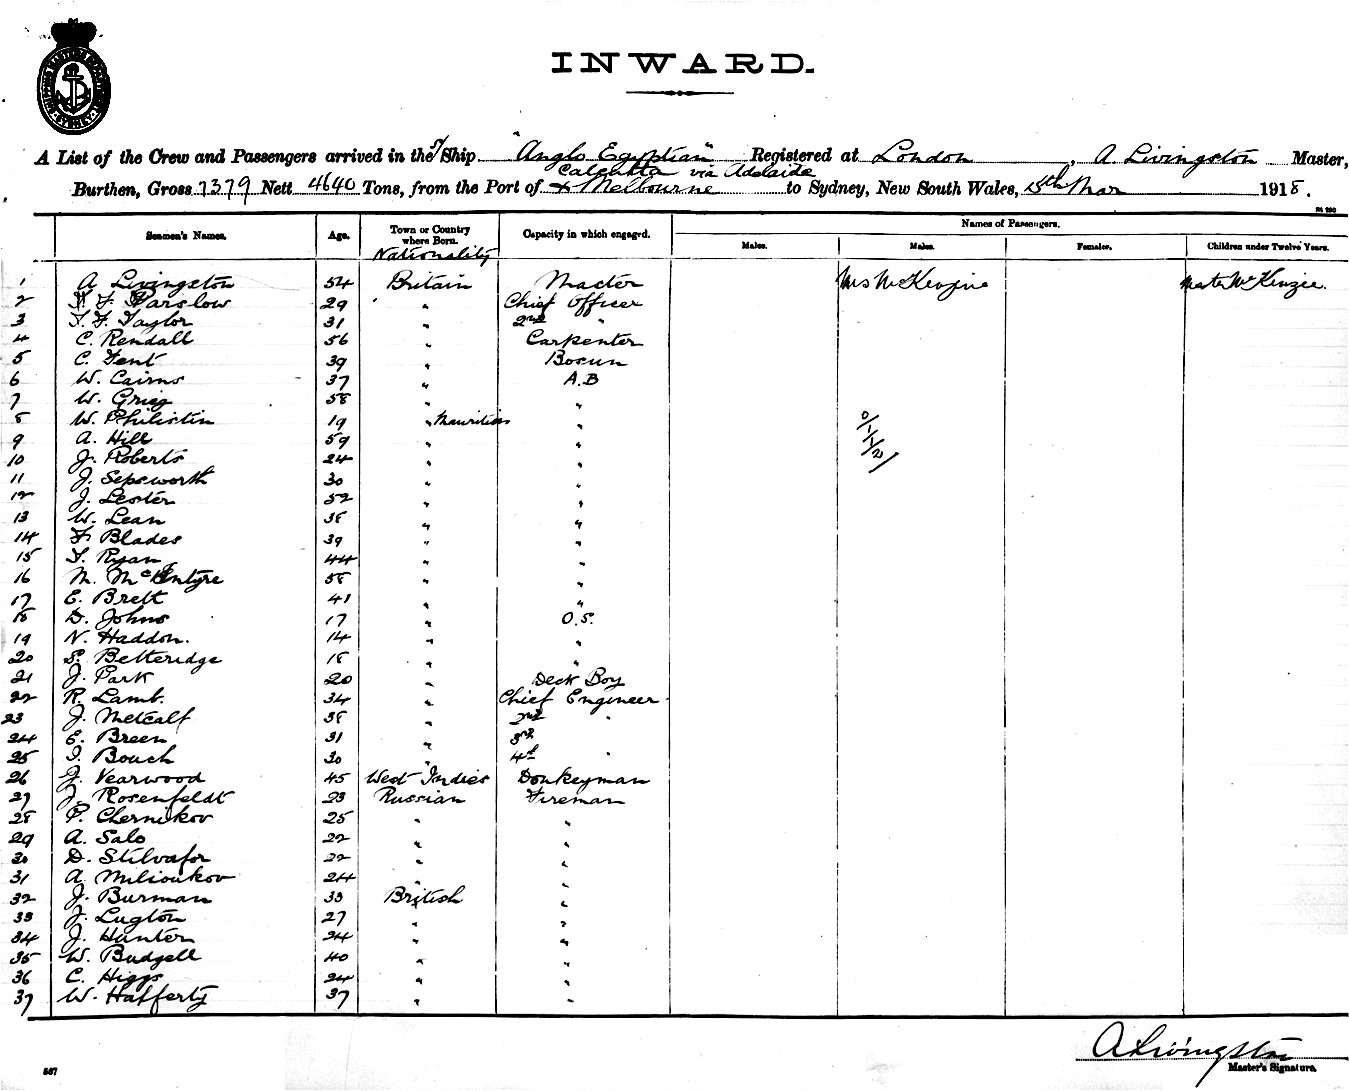 SHIPPING MASTERS DEPARTMENT SYDNEY
INWARD.
A List of the Crew and Passengers arrived in the S/Ship "Anglo Egyptian" Registered at London, A. Livingston Master,
Calcutta via Adelaide
Burthen, Gross 7379 Nett 4640 Tons, from the Port of & Melbourne to Sydney, New South Wales, 15th Mar 1918.
Seamen's Names. Age. Town or Country where Born. Nationality Capacity in which engaged. Names of Passengers.
Males. Males. Females. Children under Twelve Years.
1 A Livingston 54 Britain Master Mrs McKenzie Mastr McKinzie.
2 F. Parslow 29 " Chief Officer
3 Taylor 31 " 2nd "
4 C. Rendall 56 " Carpenter
5 C. Tent 39 " Bosun
6 W. Cairns 37 " A.B
7 W. Grieg 58 " "
8 W. Philistin 19 " Mauritius "
9 A. Hill 59 " "
10 J. Roberts 24 " "
11 J. Sepsworth 30 " "
12 J. Lester 52 " "
13 W. Lean 38 " "
14 F. Blades 39 " "
15 T. Ryan 44 " "
16 M. McIntyre 58 " "
17 E. Brett 41 " "
18 D. Johns 17 " O.S.
19 N. Haddon. 14 " "
20 S. Betteridge 18 " "
21 J. Park 20 " Deck Boy
22 R. Lamb. 34 " Chief Engineer
23 J. Metcalf 38 " 2nd "
24 E. Breen 31 " 3rd
25 Bouch 30 " 4th "
26 J. Yearwood 45 West Indies Donkeyman
27 J. Rosenfeldt 23 Russian Fireman
28 P. Chernikov 25 " "
29 A. Salo 22 " "
30 D. Stilvafor 22 " "
31 A Milioukov 24 " "
32 J. Burman 33 British "
33 J. Lugton 27 " "
34 J. Hunter 24 " "
35 W. Budgell 40 " "
36 C. Higgs 24 " "
37 W. Hafferty 37 " "
A Livingston
Master's Signature.
567